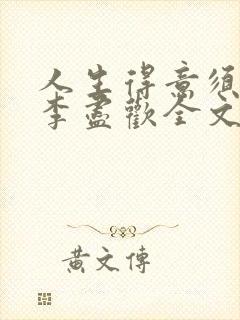 人生得意須
李盡歡全文
黃文傳